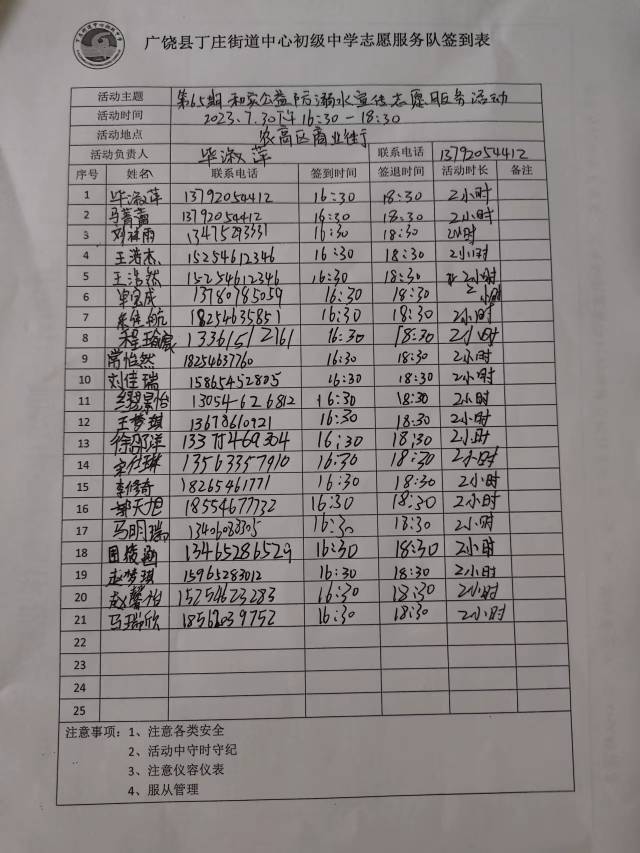 广饶县丁庄街道中心初级中学志愿服务队签到表
活动主题 第65期和安公益防溺水宣传志愿服务活动
活动时间 2023.7.30下午16:30-18:30
活动地点 农高区商业街
活动负责人 毕淑萍 联系电话 13792054412
序号 姓名 联系电话 签到时间 签退时间 活动时长 备注
1 毕淑萍 13792054412 16:30 18:30 2小时
2 马菁蕾 13792054412 16:30 18:30 2小时
3 刘祥雨 13475293331 16:30 18:30 2小时
4 王浩杰 15254612346 16:30 18:30 2小时
5 王浩然 15254612346 16:30 18:30 2小时
6 13780785059 16:30 18:30 2小时
7 18254635851 16:30 18:30 2小时
8 程瑜宸 13361512161 16:30 18:30 2小时
9 常怡然 18254637760 16:30 18:30 2小时
10 刘佳瑞 15865452805 16:30 18:30 2小时
11 缪景怡 13054626812 16:30 18:30 2小时
12 王梦琪 13678610921 16:30 18:30 2小时
13 16:30 18:30 2小时
14 宋仕琳 13563357910 16:30 18:30 2小时
15 李修奇 18265461771 16:30 18:30 2小时
16 郭天旭 18554677732 16:30 18:30 2小时
17 马明瑞 16:30 18:30 2小时
18 13465286529 16:30 18:30 2小时
19 赵梦琪 15965283012 16:30 18:30 2小时
20 赵馨怡 15254623283 16:30 18:30 2小时
21 马瑞欣 16:30 18:30 2小时
22
23
24
25
注意事项：1、注意各类安全
2、活动中守时守纪
3、注意仪容仪表
4、服从管理